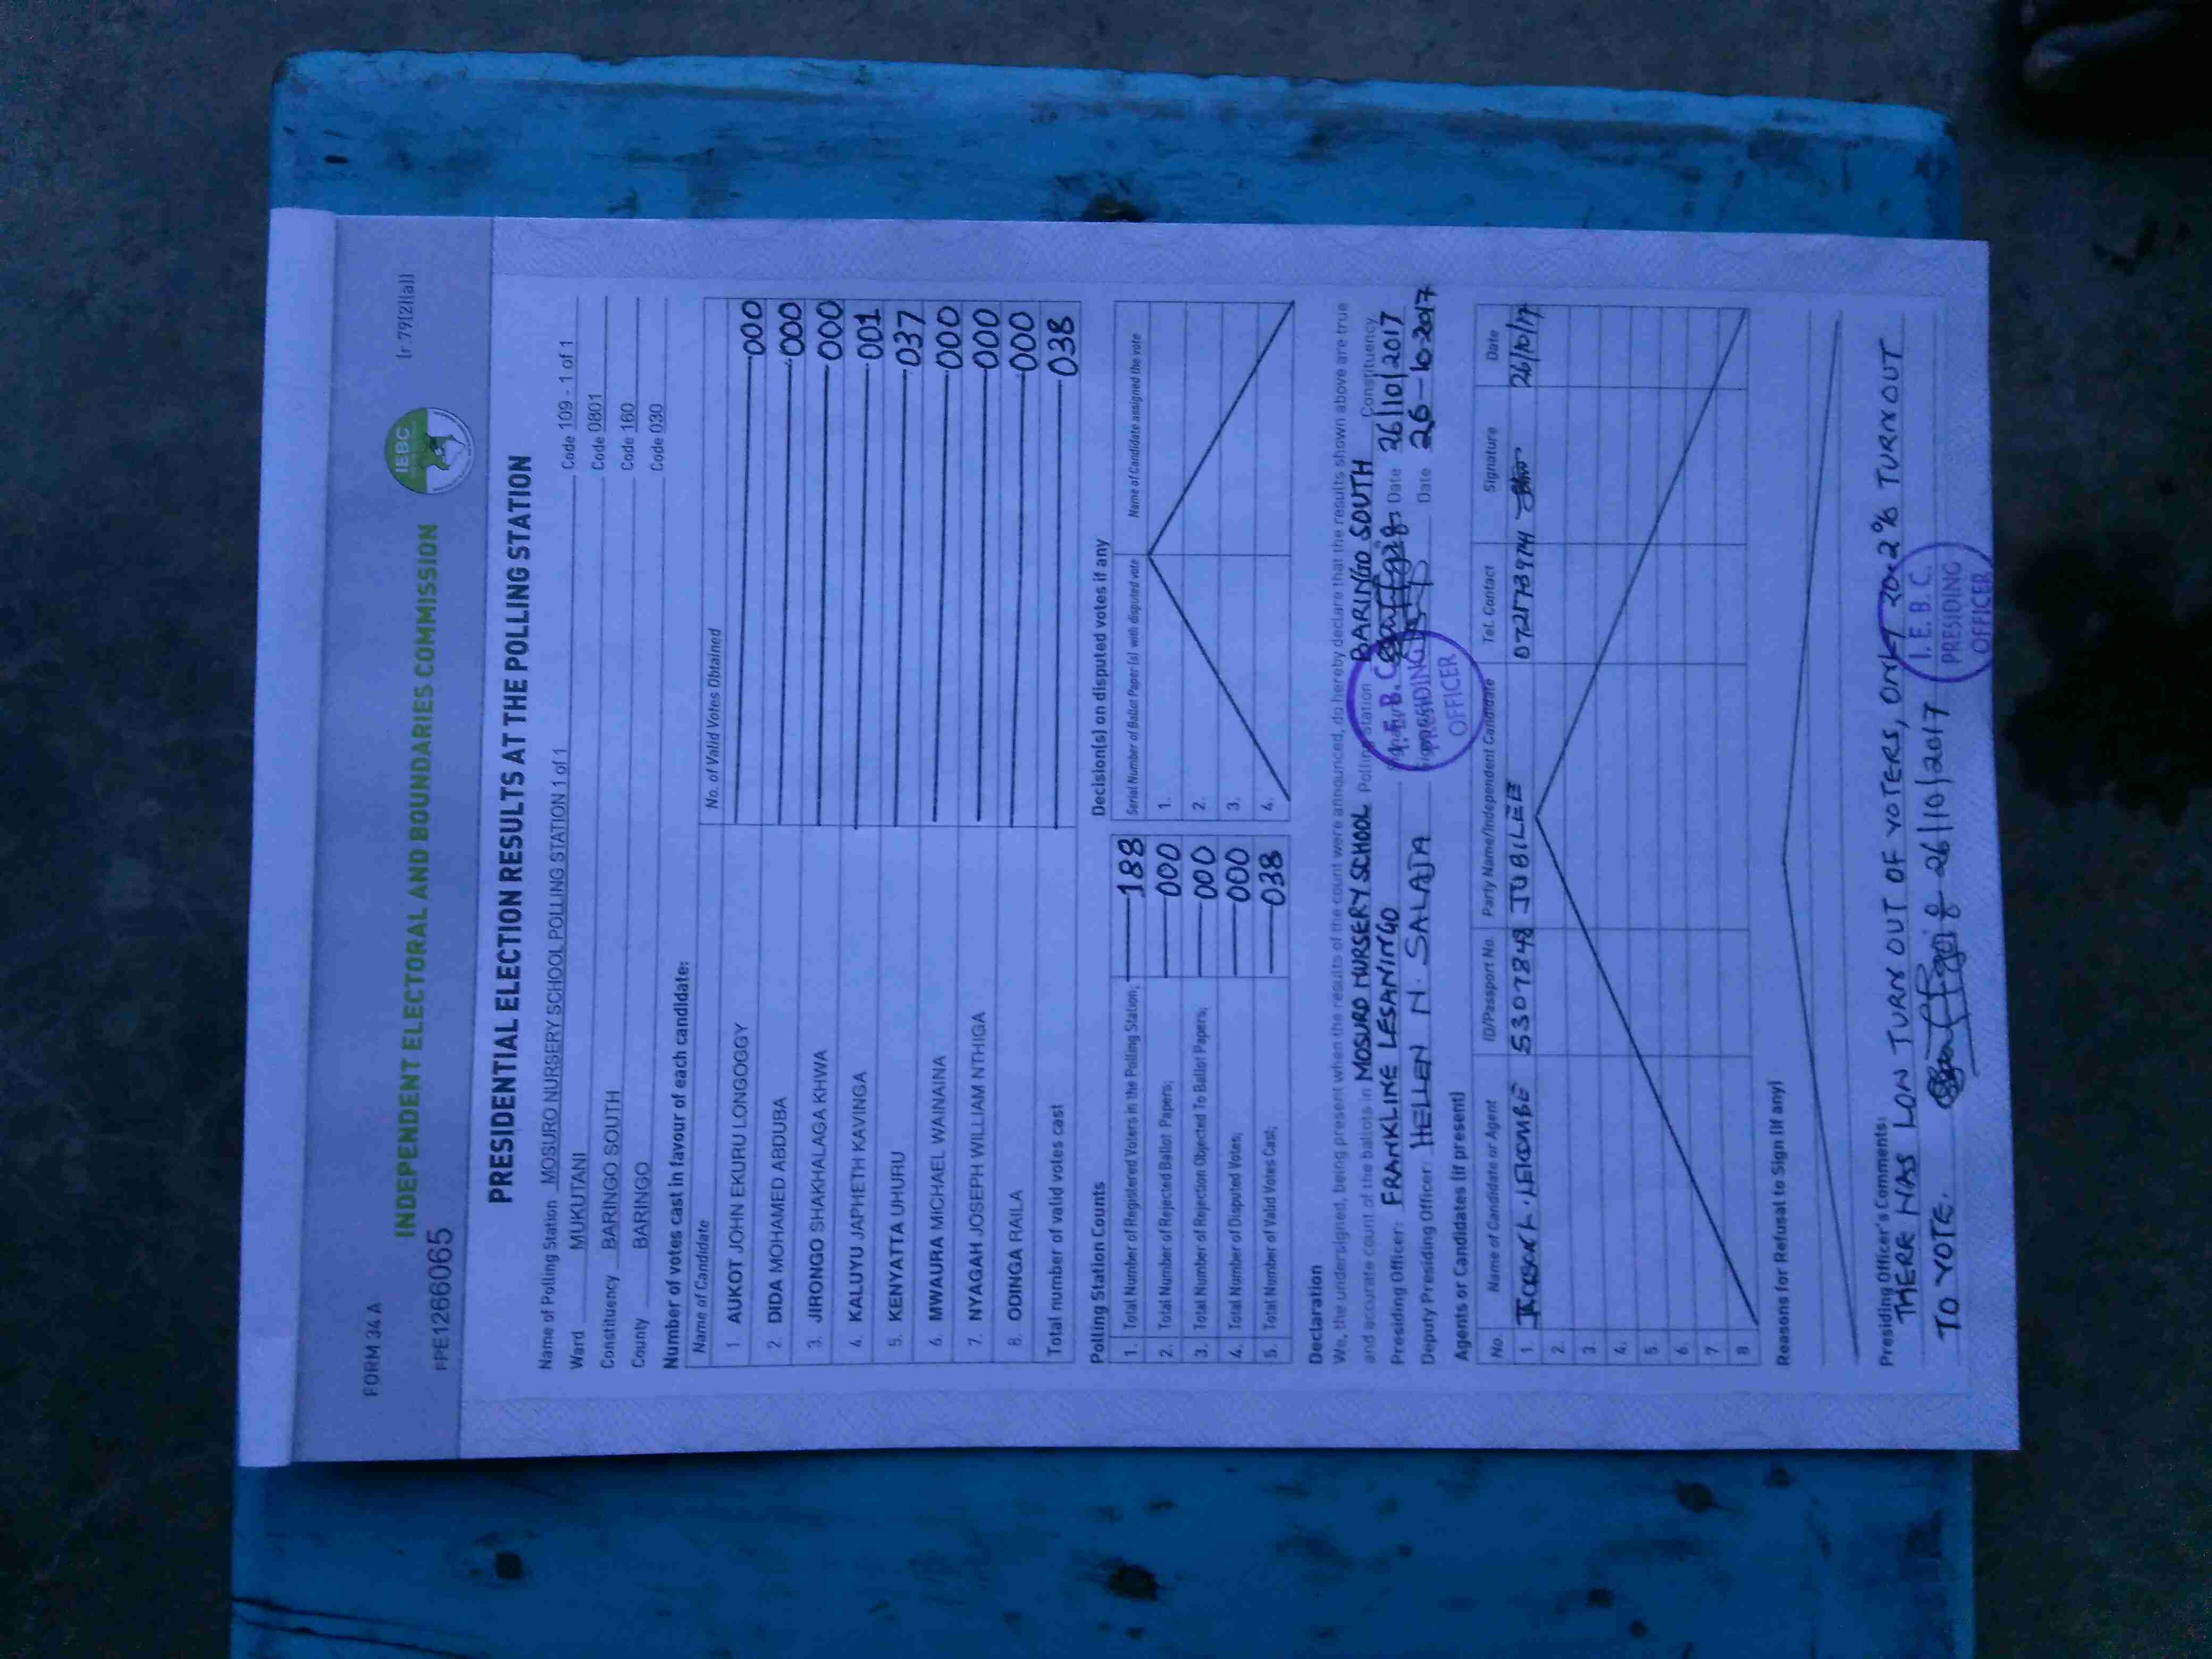 FORM 34 A
[r.79(2)(a)]
IEBC
INDEPENDENT ELECTORAL AND BOUNDARIES COMMISSION
FPE1266065
PRESIDENTIAL ELECTION RESULTS AT THE POLLING STATION
Name of Polling Station MOSURO NURSERY SCHOOL POLLING STATION 1 of 1 Code 109 - 1 of 1
Ward MUKUTANI Code 0801
Constituency BARINGO SOUTH Code 160
County BARINGO Code 030
Number of votes cast in favour of each candidate:
Name of Candidate No. of Valid Votes Obtained
1 AUKOT JOHN EKURU LONGOGGY 000
2. DIDA MOHAMED ABDUBA 000
3. JIRONGO SHAKHALAGA KHWA 000
4. KALUYU JAPHETH KAVINGA 001
5. KENYATTA UHURU 037
6. MWAURA MICHAEL WAINAINA 000
7. NYAGAH JOSEPH WILLIAM NTHIGA 000
8. ODINGA RAILA 000
Total number of valid votes cast 038
Polling Station Counts
1. Total Number of Registered Voters in the Polling Station; 188
2. Total Number of Rejected Ballot Papers; 000
3. Total Number of Rejection Objected To Ballot Papers; 000
4. Total Number of Disputed Votes; 000
5. Total Number of Valid Votes Cast; 038
Decision(s) on disputed votes if any
Serial Number of Ballot Paper(s) with disputed vote Name of Candidate assigned the vote
1.
2.
3.
4.
Declaration
We, the undersigned, being present when the results of the count were announced, do hereby declare that the results shown above are true
and accurate count of the ballots in MOSURO NURSERY SCHOOL Polling Station BARINGO SOUTH Constituency.
Presiding Officer: FRANKLINE LESANINGO Date 26/10/2017
Deputy Presiding Officer: HELLEN N. SALAJA Date 26-10-2017
I.E.B.C.
PRESIDING
OFFICER
Agents or Candidates (if present)
No. Name of Candidate or Agent ID/Passport No. Party Name/Independent Candidate Tel. Contact Signature Date
1. LEKOMBE JUBILEE 26/10/17
2.
3.
4.
5.
6.
7
8
Reasons for Refusal to Sign (if any)
Presiding Officer's Comments:
THERE HAS LON TURN OUT OF VOTERS, ONLY 20.2% TURNOUT
TO VOTE. 26/10/2017
I.E.B.C.
PRESIDING
OFFICER